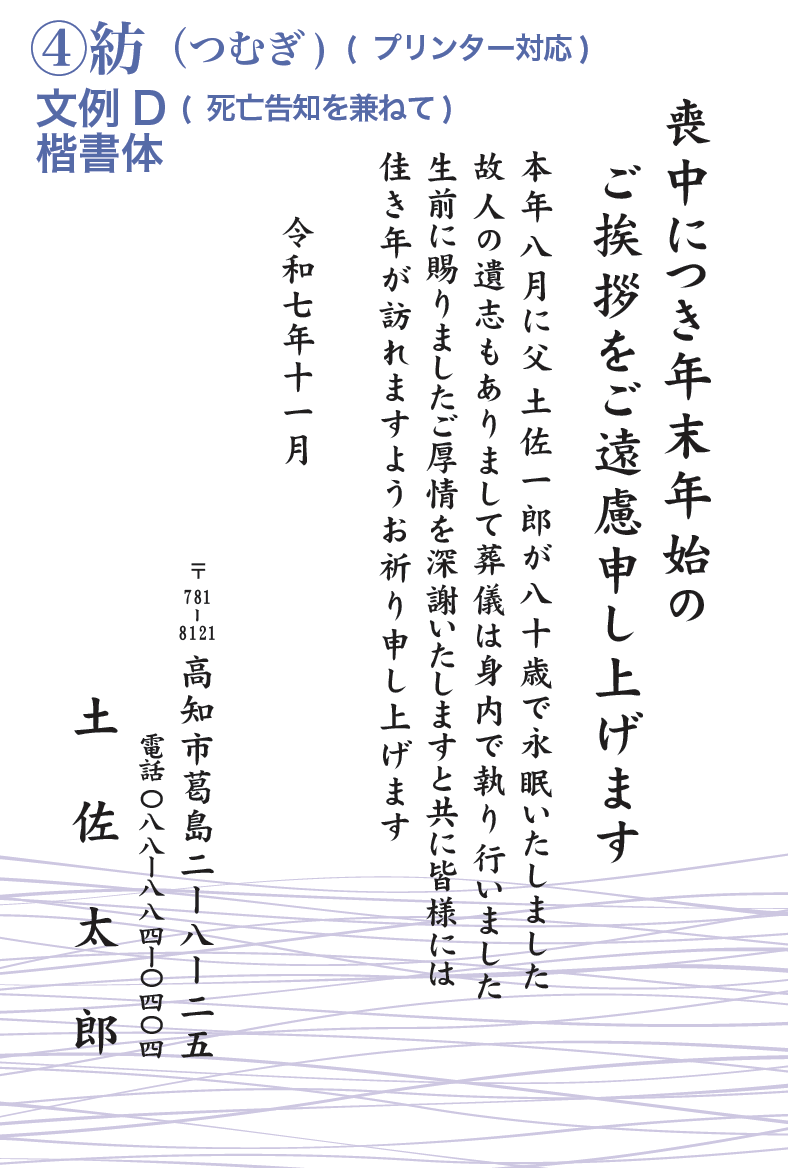 ④紡（つむぎ）(プリンター対応)
文例D(死亡告知を兼ねて)
楷書体
喪中につき年末年始の
ご挨拶をご遠慮申し上げます
本年八月に父土佐一郎が八十歳で永眠いたしました
故人の遺志もありまして葬儀は身内で執り行いました
生前に賜りましたご厚情を深謝いたしますと共に皆様には
佳き年が訪れますようお祈り申し上げます
令和七年十一月
〒781-8121 高知市葛島二ー八ー二五
電話〇八八ー八八四ー〇四〇四
土佐太郎